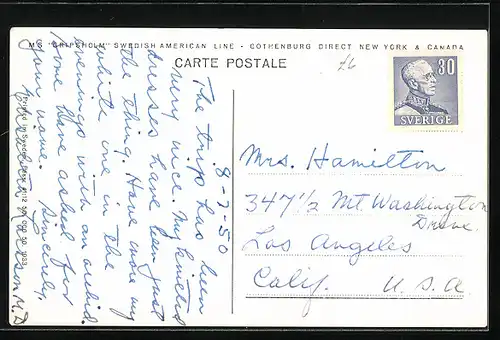 M/S "GRIPSHOLM" SWEDISH AMERICAN LINE - GOTHENBURG DIRECT NEW YORK & CANADA
CARTE POSTALE
30
SVERIGE
8-7-50
The trip has been
very nice. My knitted
dresses have been just
the thing. Have wore my
white one in the
evenings with an orchid.
Some have asked for
your name. Sincerely,
Larson M.D.
Mrs. Hamilton
347½ Mt. Washington
Drive
Los Angeles
Calif. U.S.A.